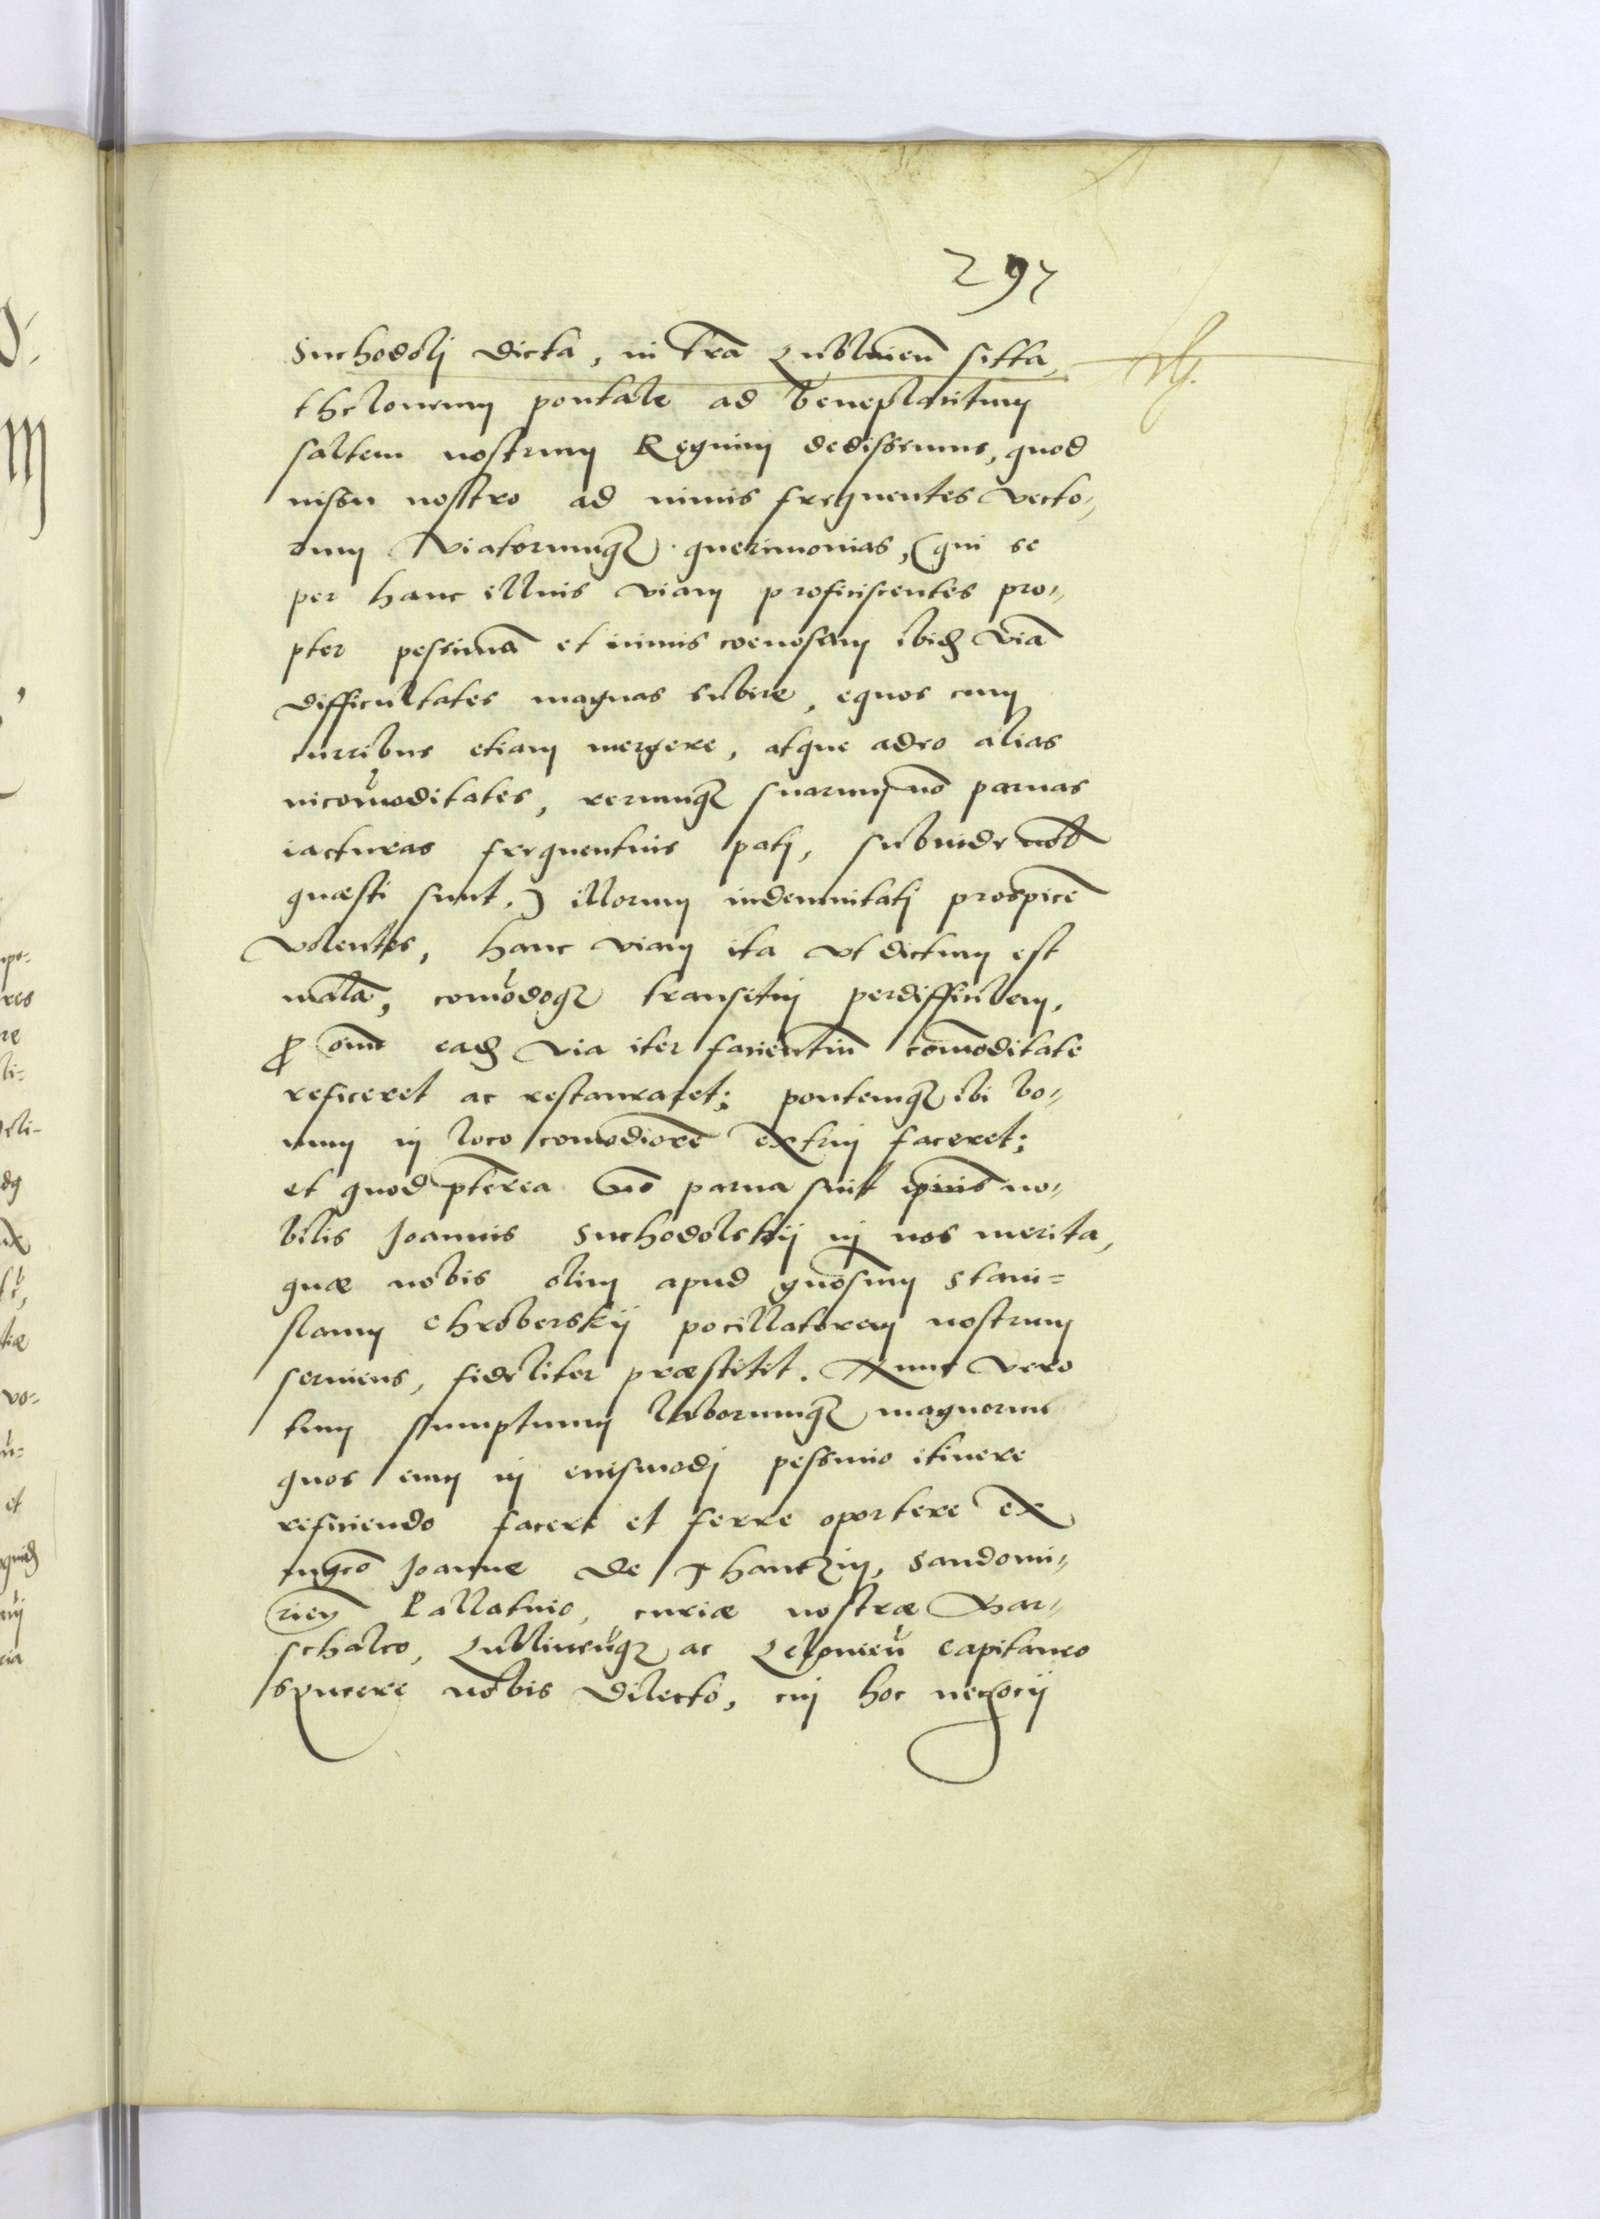 297
Suchodolj dicta, in tr̄a Lublineñ sitta,
theloneum pontale ad beneplacitum
saltem nostrum Regium dedissemus, quod
iussu nostro ad nimis frequentes vecto,,
rum viatorumq₃ querimonias, (qui se
per hanc illius viam proficiscentes pro,,
pter pessimā et nimis coenosam ibid viā
difficultates magnas subire, equos cum
curribus etiam mergere, atque adeo alias
incom̄oditates, rerumq₃ suarum nō paruas
iacturas frequentius patj, subinde nob
quæsti sunt.) illorum indemnitatj prospicē
volentes, hanc viam ita vt dictum est
malā, com̄odoq₃ transitui perdifficilem,
ꝓ om̄i ead via iter facientiū com̄oditate
reficeret ac restauraret; pontemq₃ ibi bo,,
num in loco com̄odiorē extrui faceret;
et quod p̄terea nō parua sint ip̄ius no,,
bilis Joannis Suchodolskij in nos merita,
quæ nobis olim apud gn̄osum Stani=
slaum Chroberskij pocillatorem nostrum
seruiens, fideliter præstitit. Nunc vero
tum sumptuum laborumq₃ magnorum
quos eum in eiusmodj pessimo itinere
reficiendo facere et ferre oportere ex
mgc̄o Joanne de Thanczin, Sandomi,,
rień Pallatino, curiæ nostræ Mar,,
schalco, Lublineñq₃ ac Lelowień Capitaneo
syncere nobis dilecto, cuj hoc negocij